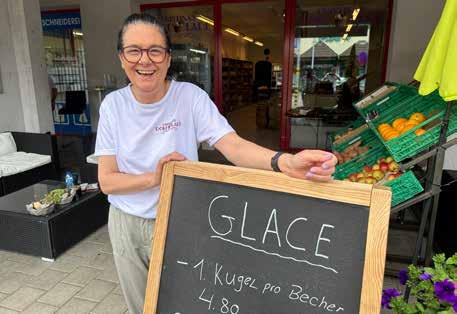 SCHNEIDEREI
GLACE
- 1. Kugel pro Becher
4.80